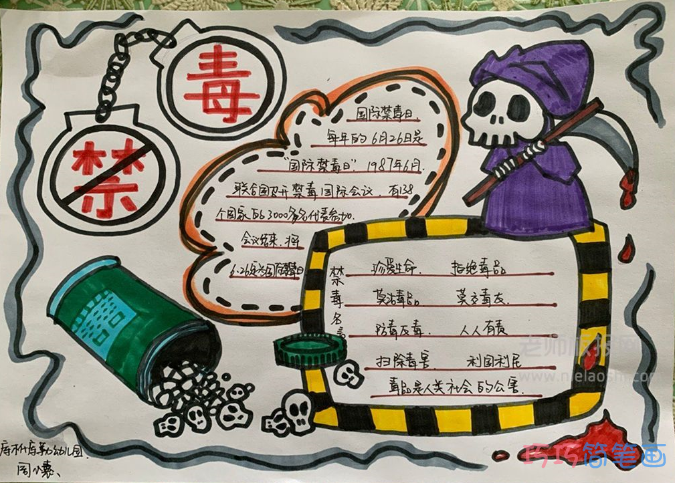 毒
禁
国际禁毒日
每年的6月26日是
"国际禁毒日".1987年6月,
联合国召开禁毒国际会议 有138
个国家的3000多名代表参加.
会议结束,将
6.26定为国际禁毒日
禁毒名言
珍爱生命. 拒绝毒品
莫沾毒品 莫交毒友.
防毒反毒 人人有责
扫除毒害 利国利民
毒品是人类社会的公害.
幼儿园
周小燕、
老师
www.mielaoshi.com
巧巧简笔画